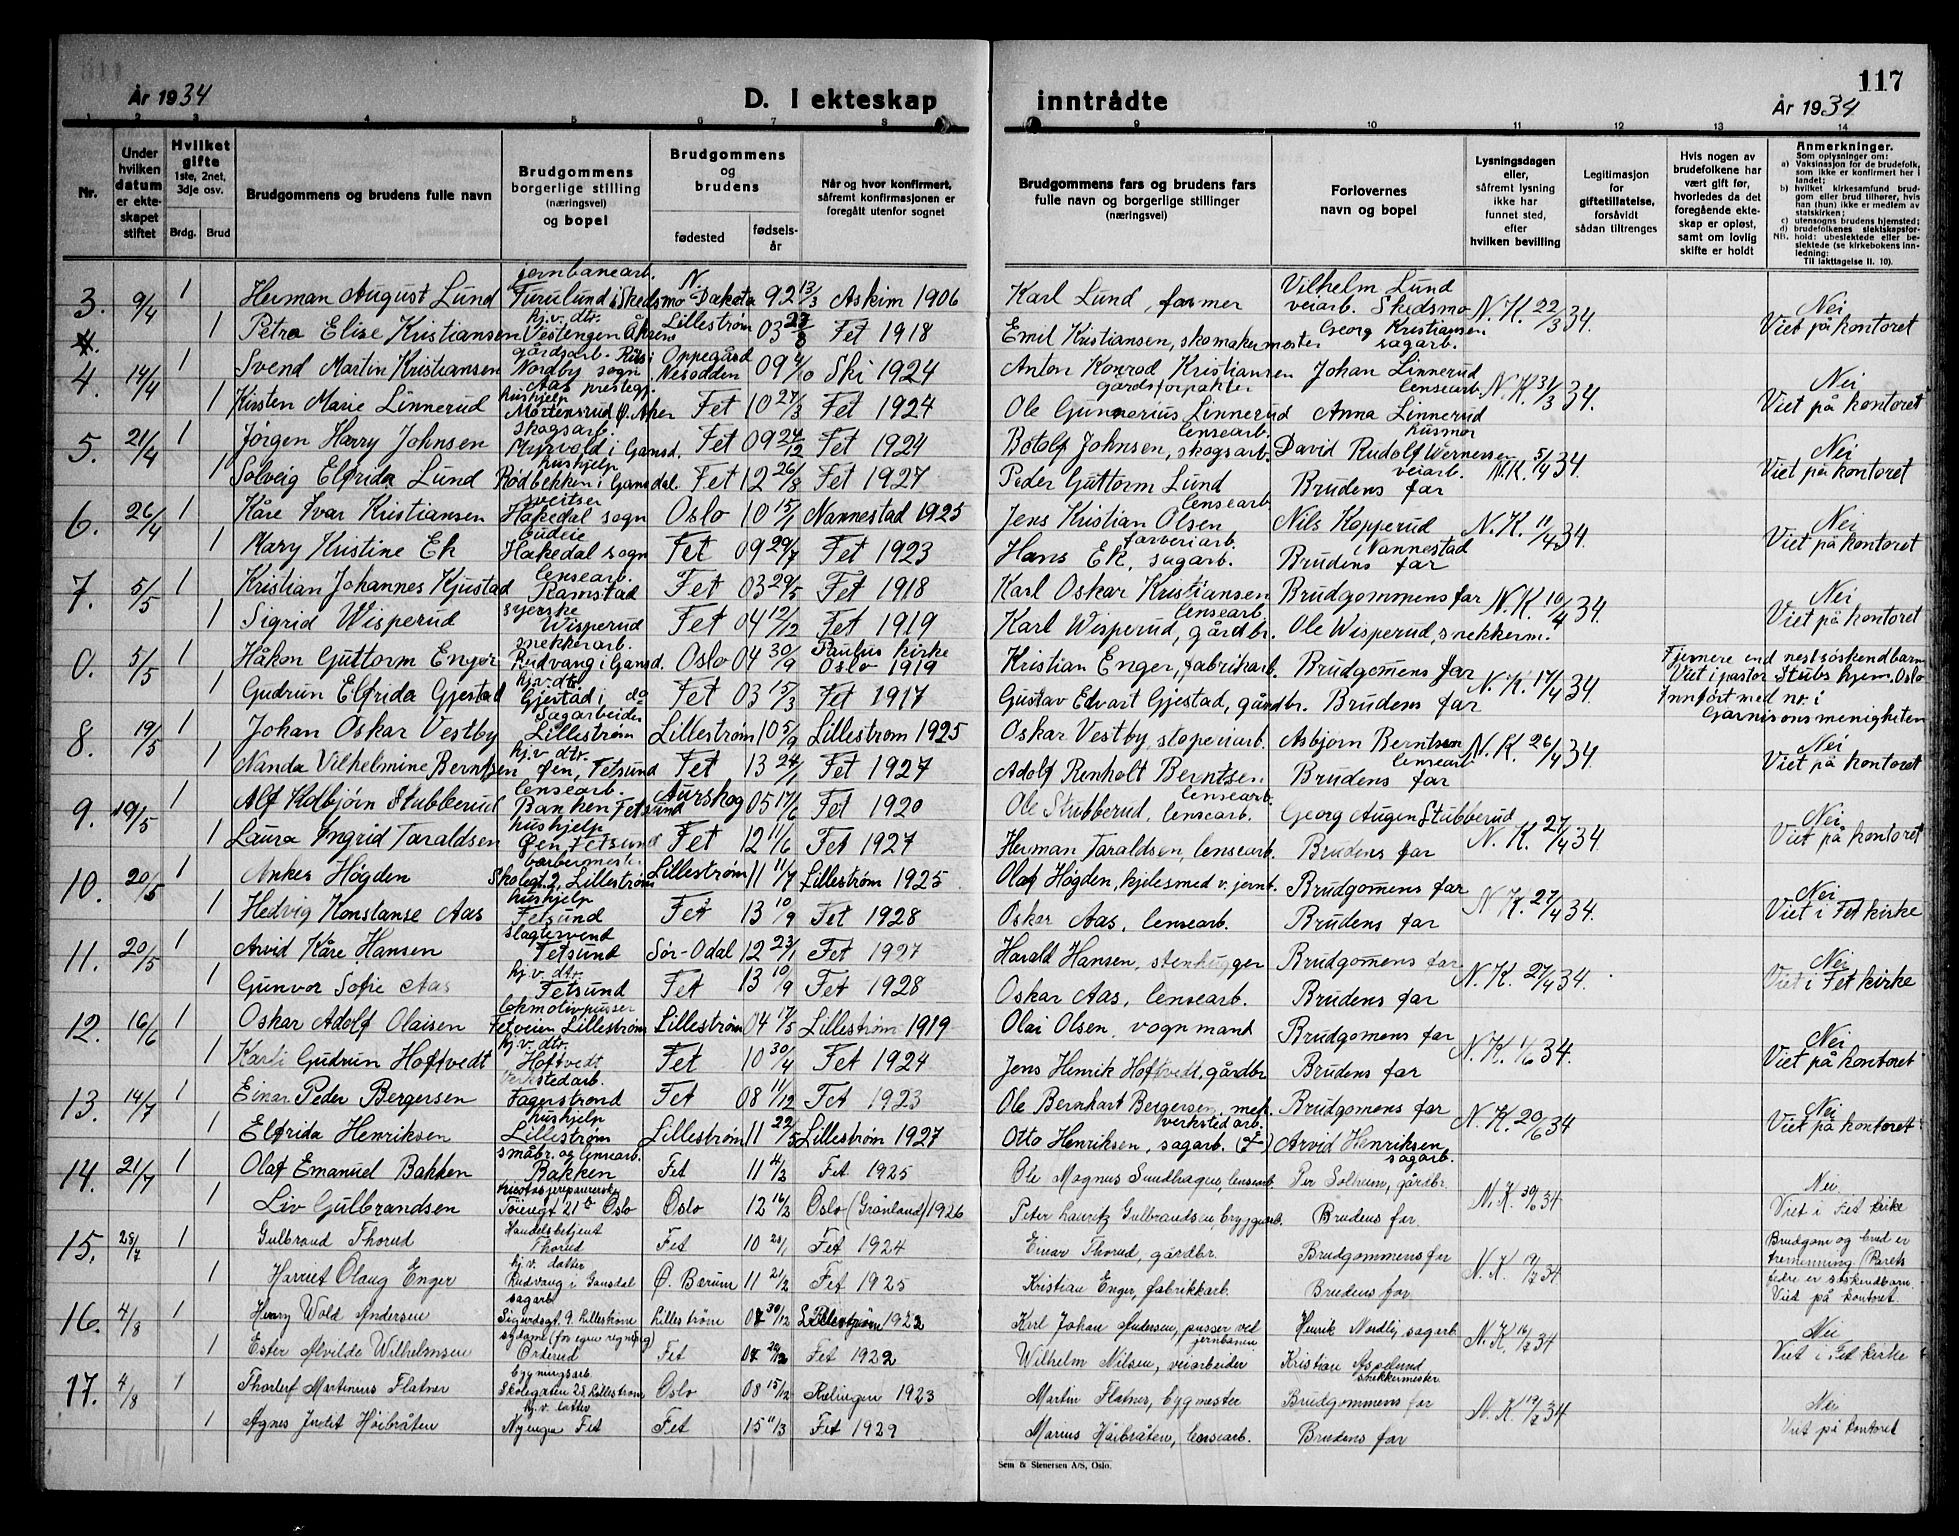 117
År 1934
D. I ekteskap
inntrådte
År 1934
1 2 3 4 5 6 7 8 9 10 11 12 13 14
Nr.
Under hvilken datum er ekteskapet stiftet
Hvilket gifte 1ste, 2net, 3dje osv.
Brdg. Brud
Brudgommens og brudens fulle navn
Brudgommens borgerlige stilling (næringsvei) og bopel
Brudgommens og brudens
fødested
fødselsår
Når og hvor konfirmert, såfremt konfirmasjonen er foregått utenfor sognet
Brudgommens fars og brudens fars fulle navn og borgerlige stillinger (næringsvei)
Forlovernes navn og bopel
Lysningsdagen eller, såfremt lysning ikke har funnet sted, efter hvilken bevilling
Legitimasjon for giftetillatelse, forsåvidt sådan tiltrenges
Hvis nogen av brudefolkene har vært gift før, hvorledes da det foregående ekteskap er opløst, samt om lovlig skifte er holdt
Anmerkninger.
Som oplysninger om:
a) Vaksinasjon for de brudefolk, som ikke er konfirmert her i landet;
b) hvilket kirkesamfund brudgom eller brud tilhører, hvis han (hun) ikke er medlem av statskirken;
c) utensogns brudens hjemsted;
d) brudefolkenes slektskapsforhold: ubeslektede eller beslektede (se kirkebokens innledning:
NB. Til iakttagelse II. 10).
3. 9/4 1 Herman August Lund jernbanearb. Furulund i Skedsmo N. Dakota 92 13/3 Askim 1906 Karl Lund, farmer Vilhelm Lund veiarb. Skedsmo N.K. 22/3 34. Nei
4. 1 Petra Elise Kristiansen hj.v. dtr. Vestengen Åkrene Lillestrøm 03 27/8 Fet 1918 Emil Kristiansen, skomakermester Georg Kristiansen sagarb. Viet på kontoret
4. 14/4 1 Svend Martin Kristiansen gårdsarb. Nordby sogn Ås prestegj. Oppegård Nesodden 09 4/10 Ski 1924 Anton Konrad Kristiansen gårdsforpakter Johan Linnerud lensearb. N.K. 31/3 34. Nei
1 Kirsten Marie Linnerud hushjelp Mortensrud Ø. Aker Fet 10 27/3 Fet 1924 Ole Gunnerius Linnerud lensearb. Anna Linnerud husmor Viet på kontoret
5. 21/4 1 Jørgen Harry Johnsen skogsarb. Myrvold i Gansd. Fet 09 24/12 Fet 1924 Botolf Johnsen, skogsarb. David Rudolf Wernersen veiarb. N.K. 5/4 34. Nei
1 Solveig Elfrida Lund hushjelp Rödbekken i Gansdal. Fet 12 26/8 Fet 1927 Peder Guttorm Lund lensearb. Brudens far Viet på kontoret
6. 26/4 1 Kåre Ivar Kristiansen sveitser Hakedal sogn Oslo 10 15/1 Nannestad 1925 Jens Kristian Olsen farveriarb. Nils Kopperud i Nannestad N.K. 11/4 34. Nei
1 Mary Kristine Ek budeie Hakedal sogn Fet 09 29/7 Fet 1923 Hans Ek, sagarb. Brudens far Viet på kontoret
7. 5/5 1 Kristian Johannes Kjustad lensearb. Ramstad Fet 03 29/5 Fet 1918 Karl Oskar Kristiansen lensearb. Brudgommens far N.K. 10/4 34. Nei
1 Sigrid Wisperud syerske Wisperud Fet 04 12/12 Fet 1919 Karl Wisperud, gårdbr. Ole Wisperud, snekkerm. Viet på kontoret
0. 5/5 1 Håkon Guttorm Enger snekkerarb. Rudvang i Gansd. Oslo 04 30/9 Paulus kirke Oslo 1919 Kristian Enger, fabrikarb. Brudgomens far N.K. 17/4 34 Fjernere end nestsöskendbarn
Viet i pastor Stubs hjem. Oslo
1 Gudrun Elfrida Gjestad hj.v. dtr Gjestad i do Fet 03 15/3 Fet 1917 Gustav Edvart Gjestad, gårdbr. Brudens far Innført med nr. i Garnisonsmenigheten
8. 19/5 1 Johan Oskar Vestby Sagarbeider Lillestrøm Lillestrøm 10 5/9 Lillestrøm 1925 Oskar Vestby, støperiarb. Asbjørn Berntsen lensearb. N.K. 26/4 34 Nei
1 Nanda Vilhelmine Berntsen hj.v. dtr. Øen, Fetsund Fet 13 24/1 Fet 1927 Adolf Renholt Berntsen lensearb. Brudens far Viet på kontoret
9. 19/5 1 Alf Kolbjörn Stubberud lensearb. Banken Fetsund Aurskog 05 17/6 Fet 1920 Ole Stubberud, lensearb. Georg Augen Stubberud N.K. 27/4 34. Nei
1 Laura Ingrid Taraldsen hushjelp Øen, Fetsund Fet 12 11/6 Fet 1927 Herman Taraldsen, lensearb. Brudens far Viet på kontoret
10. 20/5 1 Anker Høgden barbermester Skolegt. 2, Lillestrøm Lillestrøm 11 11/7 Lillestrøm 1925 Olaf Høgden, kjelesmed v. jernb. Brudgomens far N.K. 27/4 34. Nei
1 Hedvig Konstanse Aas hushjelp Fetsund Fet 13 10/9 Fet 1928 Oskar Aas, lensearb. Brudens far Viet i Fet kirke
11. 20/5 1 Arvid Kåre Hansen slagtersvend Fetsund Sør-Odal 12 23/1 Fet 1927 Harald Hansen, stenhugger Brudgomens far N.K. 27/4 34. Nei
1 Gunvor Sofie Aas hj.v. dtr. Fetsund Fet 13 10/9 Fet 1928 Oskar Aas, lensearb. Brudens far Viet i Fet kirke
12. 16/6 1 Oskar Adolf Olaisen lokomotivpusser Fetveien Lillestrøm Lillestrøm 04 17/5 Lillestrøm 1919 Olai Olsen, vognmant Brudgomens far N.K. 1/6 34. Nei
1 Karli Gudrun Hoftvedt hj.v. dtr. Hoftvedt Fet 10 30/4 Fet 1924 Jens Henrik Hoftvedt, gårdbr Brudens far Viet på kontoret
13. 14/7 1 Einar Peder Bergersen Verkstedarb. Fagerstrand Fet 08 11/12 Fet 1923 Ole Bernhart Bergersen, mek. verkstedarb. Brudgomens far N.K. 20/6 34 Nei
1 Elfrida Henriksen hushjelp Lillestrøm Lillestrøm 11 22/5 Lillestrøm 1927 Otto Henriksen, sagarb. Arvid Henriksen sagarb. Viet på kontoret
14. 21/7 1 Olaf Emanuel Bakken småbr. og lensearb. Bakken Fet 11 4/2 Fet 1925 Ole Magnus Sundhagen, lensearb. Per Solheim, gårdbr. N.K. 30/6 34 Nei
1 Liv Gulbrandsen Töiengt 21 Oslo Oslo 12 16/2 Oslo (Grønland) 1926 Peter Lauritz Gulbrandsen, bryggarb. Brudens far Viet i Fet kirke
15. 28/7 1 Gulbrand Thorud Handelsbetjent Thorud Fet 10 28/1 Fet 1924 Einar Thorud, gårdbr. Brudgommens far N.K. 19/7 34 Brudgom og brud er tremenning (Parets
1 Harriet Olaug Enger hj.v. datter Rudvang i Gansdal Ø. Berum 11 21/2 Fet 1925 Kristian Enger, fabrikkarb. Brudens far fedre er söskendbarn. Viet på kontoret
16. 4/8 1 Henry Wold Andersen sagarb. Sigurdsgt. 9. Lillestrøm Lillestrøm 07 30/12 Lillestrøm 1922 Karl Johan Andersen, pusser ved jernbanen Henrik Nordby sagarb. N.K. 16/7 34 Nei
1 Ester Alvilde Wilhelmsen sydame (for egen regning) Ørderud Fet Fet 1922 Wilhelm Nilsen, veiarbeider Kristian Aspelund snekkermester Viet i Fet kirke
17. 4/8 1 Thorleif Martinius Flatner bygningsarb. Skolegaten 28, Lillestrøm Oslo 08 15/12 Rælingen 1923 Martin Flatner, bygmester Brudgommens far N.K. 19/7 34 Nei
1 Agnes Judit Höibråten hj.v. datter Nyengen Fet Fet 15 11/3 Fet 1929 Marius Höibråten, lensearb. Brudens far Viet på kontoret
Sem & Stenersen A/S, Oslo.